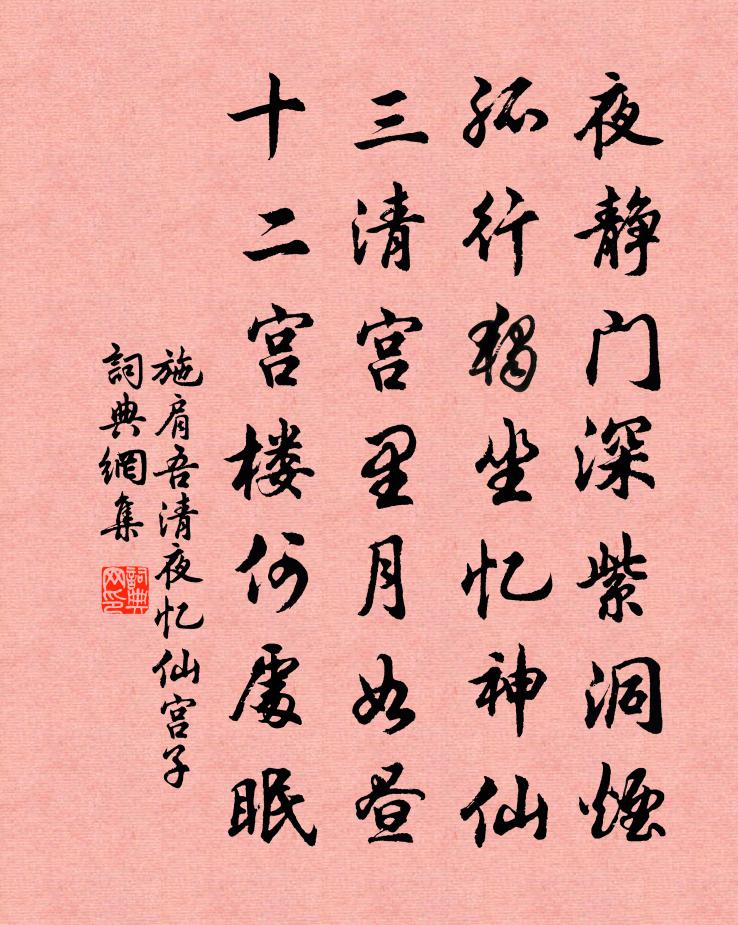 夜静门深紫洞煙
孤行獨坐忆神仙
三清宫里月如昼
十二宫楼何處眠
施肩吾清夜忆仙宫子
詞典網集
詞典网印